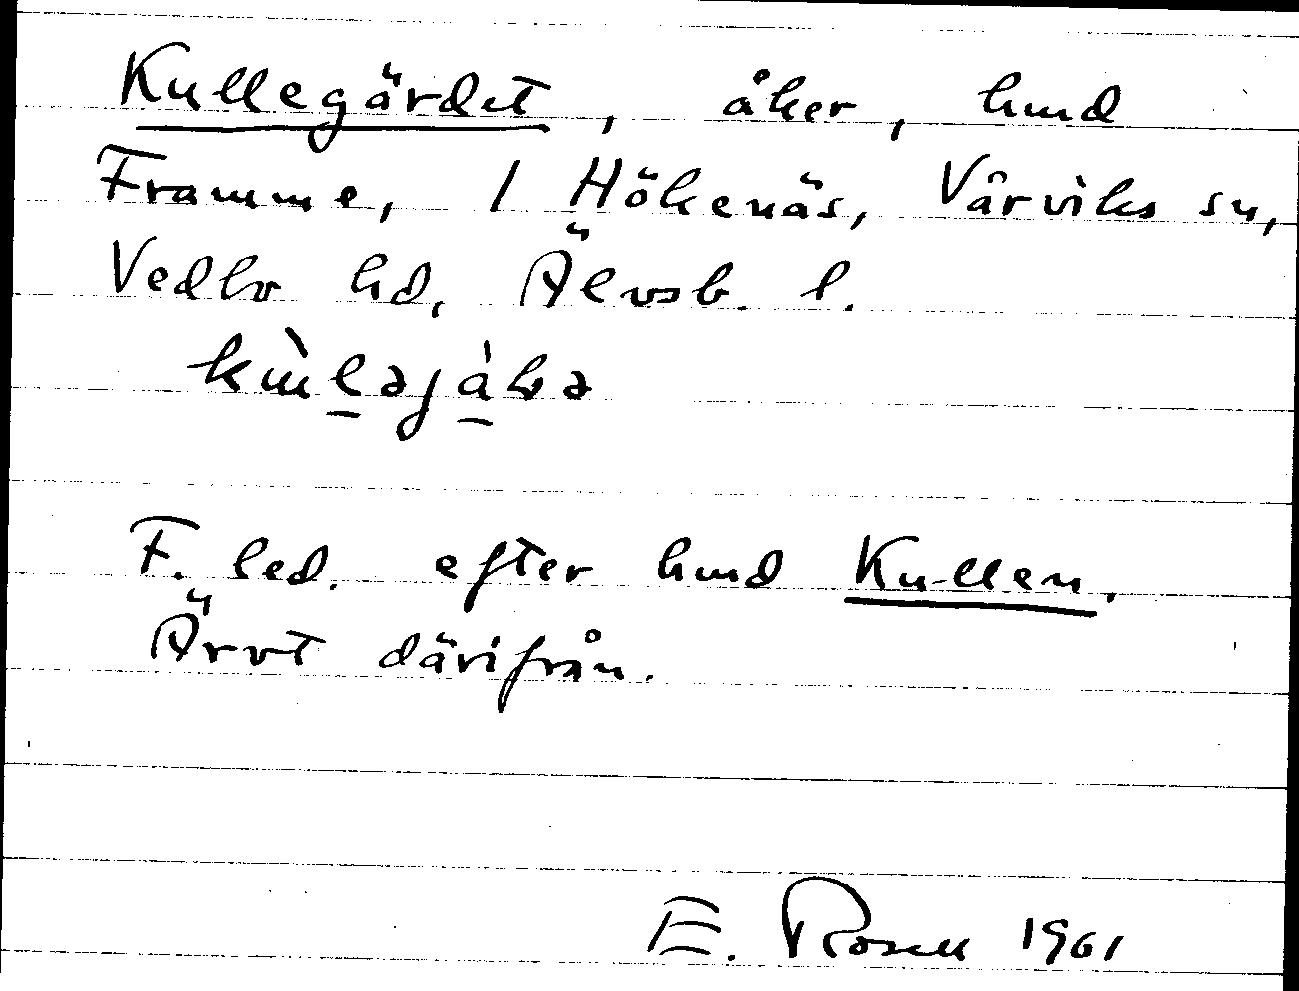 Kullegärdet, åker, hmd
Framme, 1 Hökenäs, Vårviks sn,
Vedbo hd, Älvsb. l.
F. led. efter hmd Kullen.
Ärvt därifrån.
E. Rosell 1961